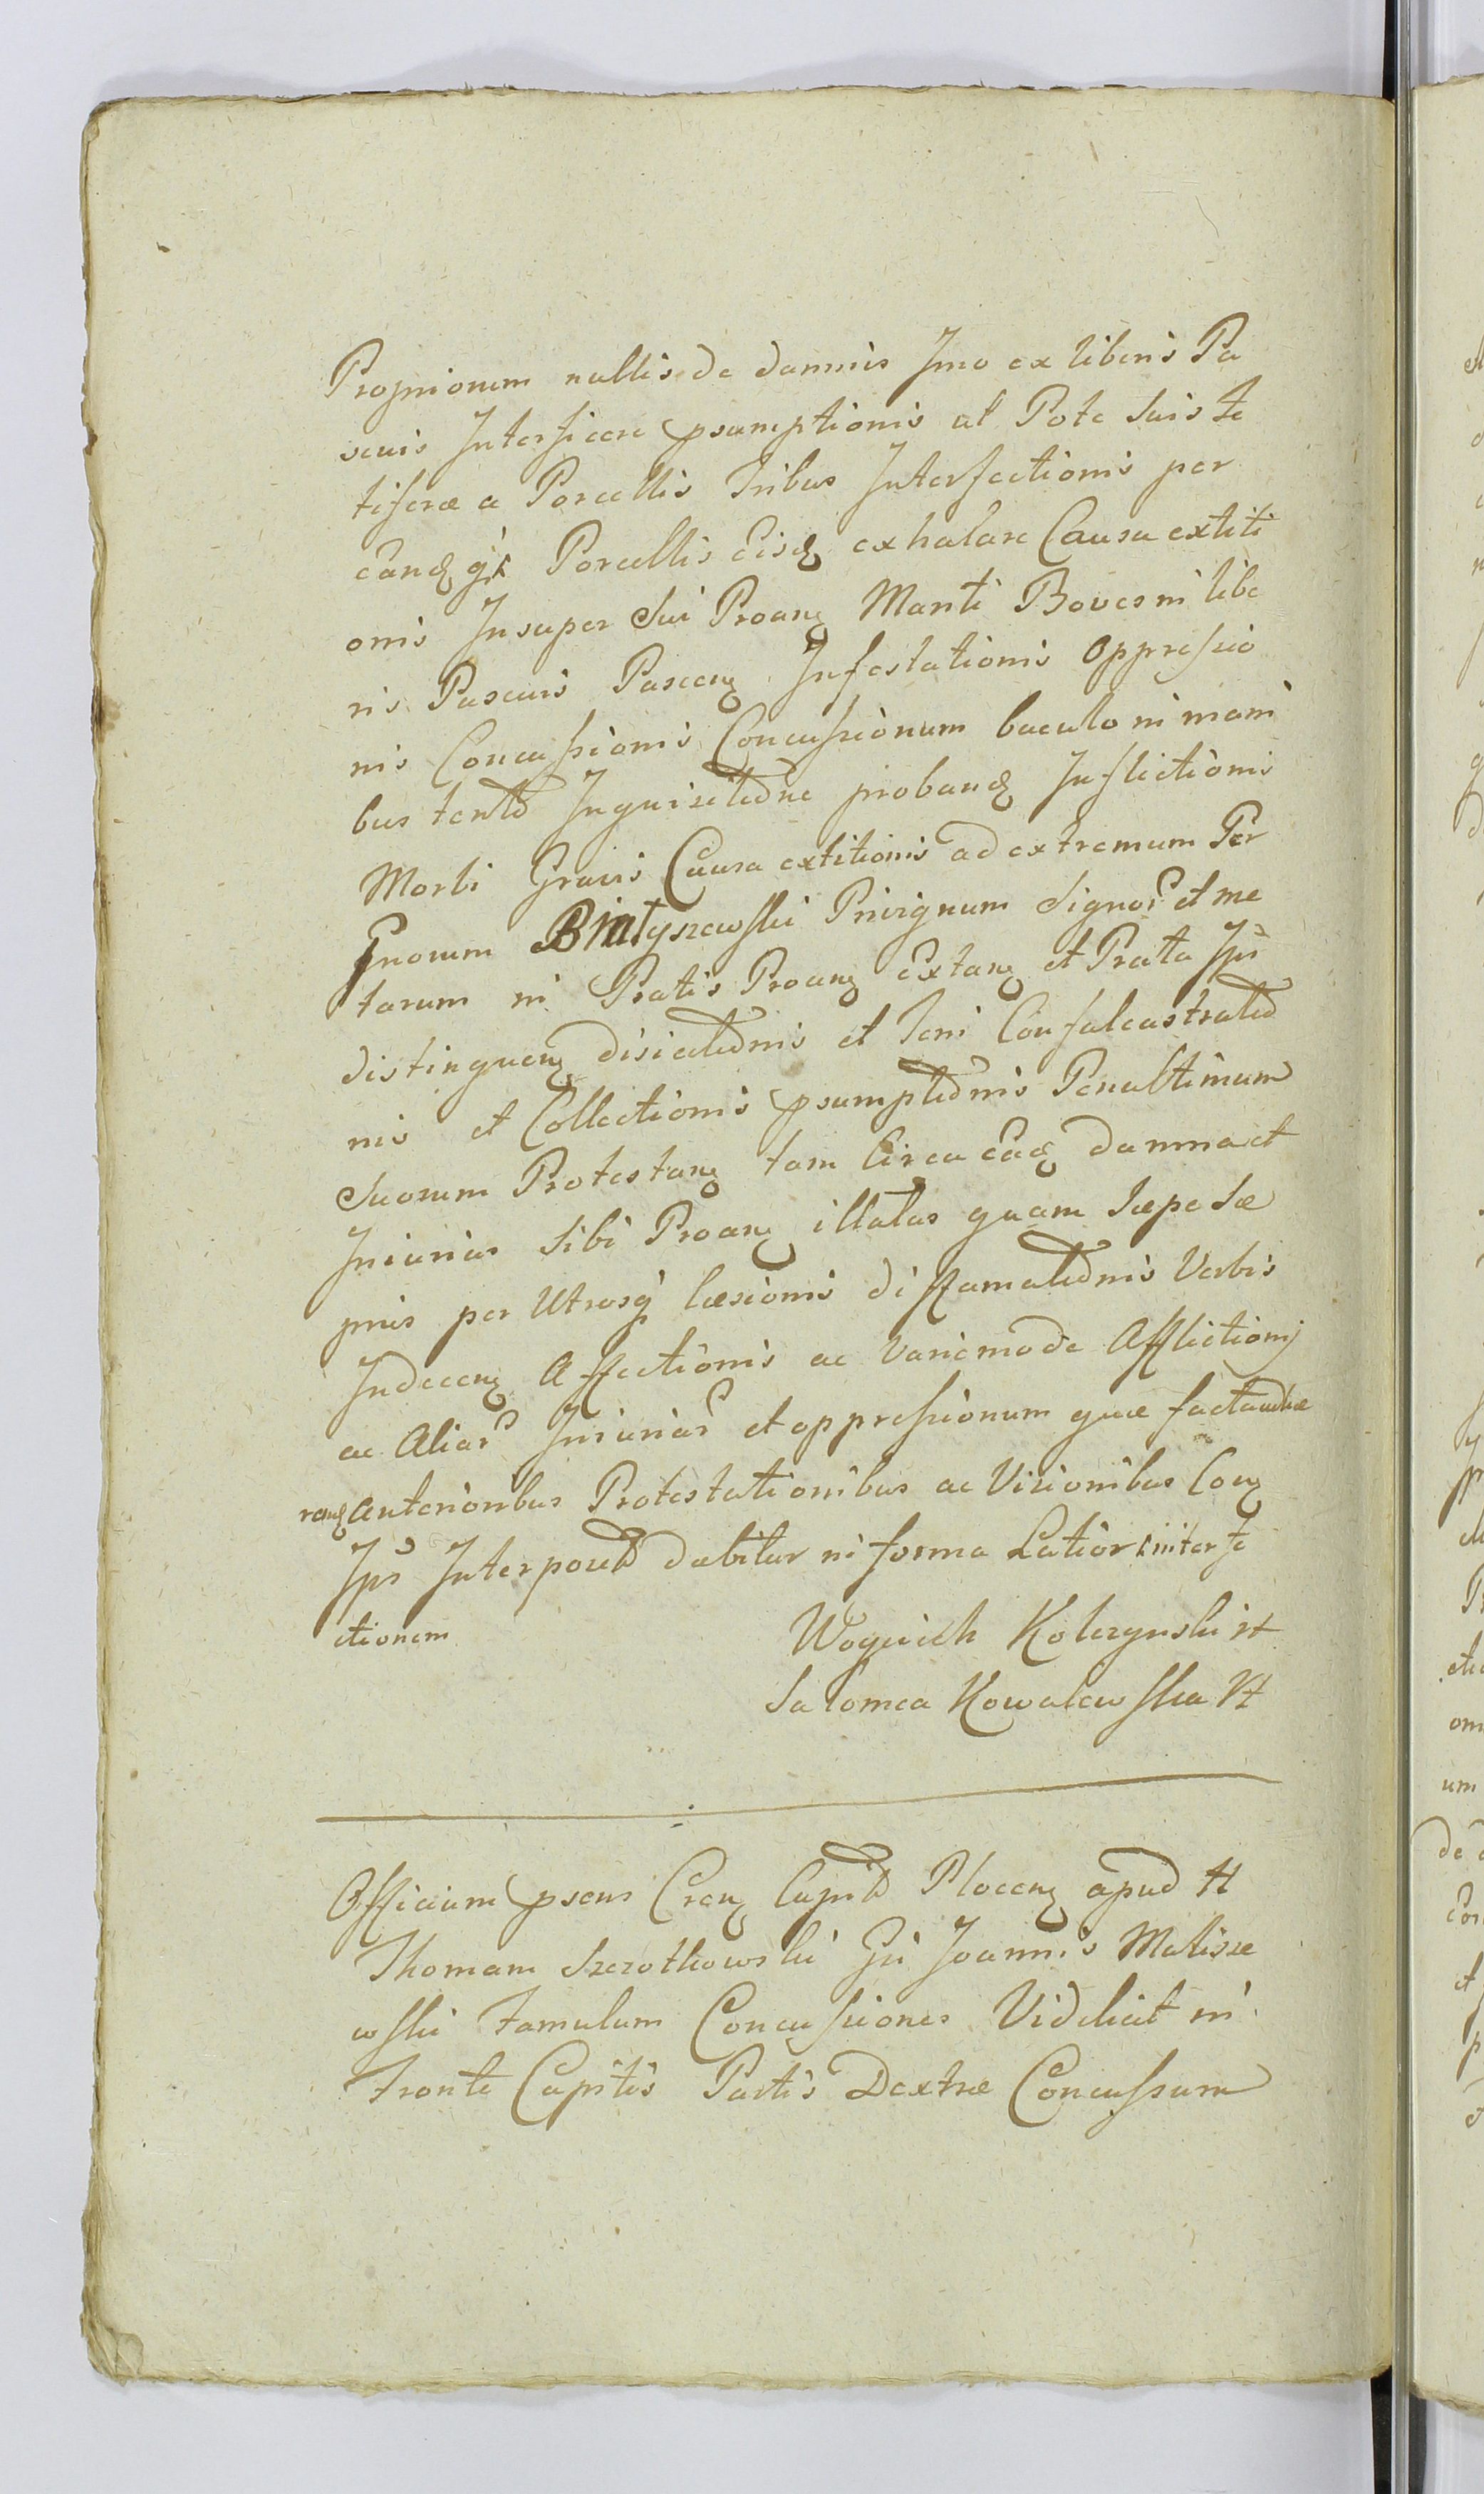 Propriorum nullis de damnis Imo ex liberis Pa
scuis Interficere psumptionis ut Pote suis Fe
tiferæ a Porcellis Tribus Interfectionis per
eandq Porcellis eisq exhalare Causa extiti
onis Insuper sui Proanq Mariti Boves in libe
ris Pascuis Pascenq Infestationis Oppressio
nis Concussionis Concussionum baculo in mani
bus tento Inquisitione probandq Inflictionis
Morbi Gravis Causa extitionis ad extremum Per
Gnorum Bialyszewski Privignum signor et me
tarum in Pratis Proanq Extanq et Prata Ips
distinguenq disiectionis et feni Confalcastratio
nis et Collectionis psumptionis Penultimum
Suorum Protestanq tam Circa eaq damna et
Iniurias sibi Proanq illatas quam sæpe sæ
pius per Utrosq læsionis diffamationis Verbis
Indecenq Affectionis ac varie mode Afflictionj
ac Aliar Iniuriar et oppressionum quæ facta
renq anterioribus Protestationibus ac Visionibus Conq
Ips Interposit dabitur in forma Latiori inter fe
ctionem
Woyciech Kolczynski
Salomea Kowalewska
Officium psens Crenq Capit Plocenq apud
Thomam Szczotkowski Gn Joannis Malisze
wski famulum Concussiones Videlicet in
Fronte Capitis Partis Dextræ Concussum